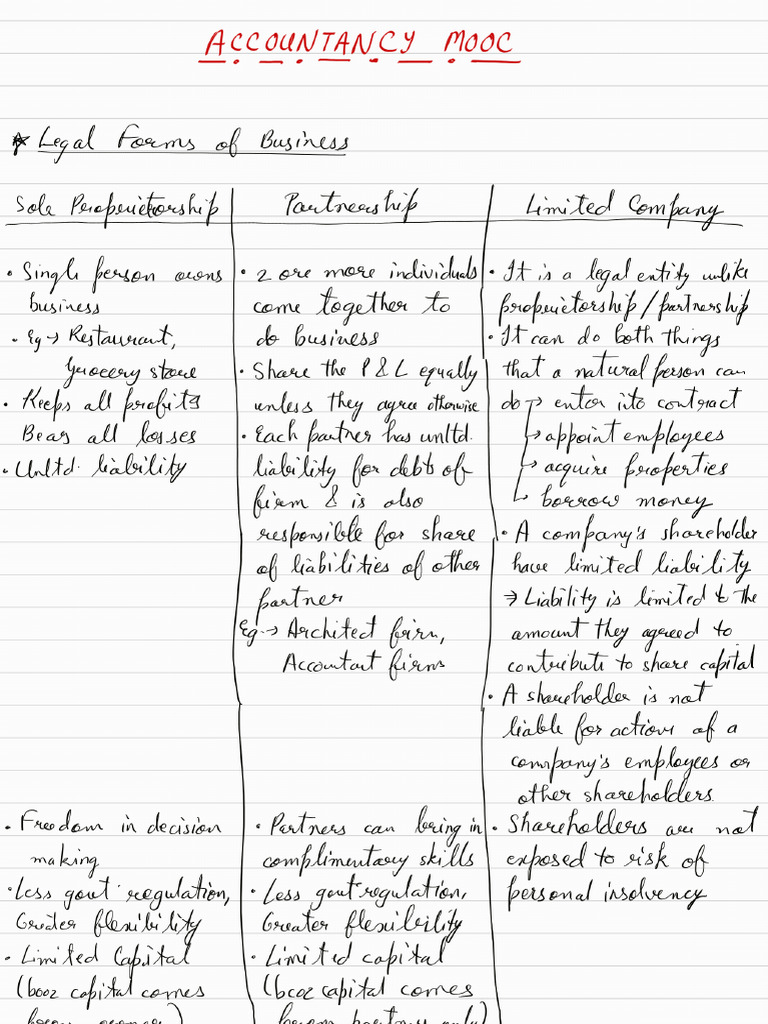 ACCOUNTANCY MOOC
* Legal Forms of Business
Sole Proprietorship
• Single person owns
business
• Eg → Restaurant,
grocery store
• Keeps all profits
Bears all losses
• Unltd. liability
Partnership
• 2 ore more individuals
come together to
do business
• Share the P & L equally
unless they agree otherwise
• Each partner has unltd.
liability for debts of
firm & is also
responsible for share
of liabilities of other
partner
Eg. → Architect firm,
Accountant firms
Limited Company
• It is a legal entity unlike
proprietorship / partnership
• It can do both things
that a natural person can
do → enter into contract
→ appoint employees
→ acquire properties
→ borrow money
• A company's shareholder
have limited liability
⇒ Liability is limited to the
amount they agreed to
contribute to share capital
• A shareholder is not
liable for actions of a
company's employees or
other shareholders.
• Freedom in decision
making
• Less govt. regulation,
Greater flexibility
• Limited Capital
(bcoz capital comes
from owner)
• Partners can bring in
complimentary skills
• Less govt regulation,
Greater flexibility
• Limited capital
(bcoz capital comes
from partners only)
• Shareholders are not
exposed to risk of
personal insolvency